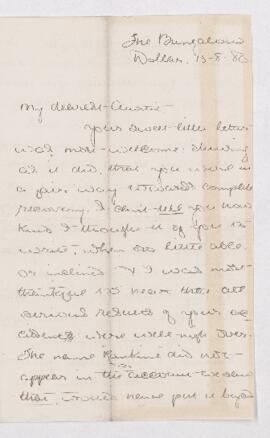 The Bungalow
Dollar, 13-8-80
My dearest Austin -
Your sweet little letter
was most welcome showing
as it did, that you were in
a fair way towards complete
recovery. I can't tell you how
kind I thought it of you to
write, when so little able
or inclined & I was most
thankful to hear that all
serious results of your ac
cident were well-nigh over.
The name Rankine did not
appear in the account we saw
that, would never put it beyond